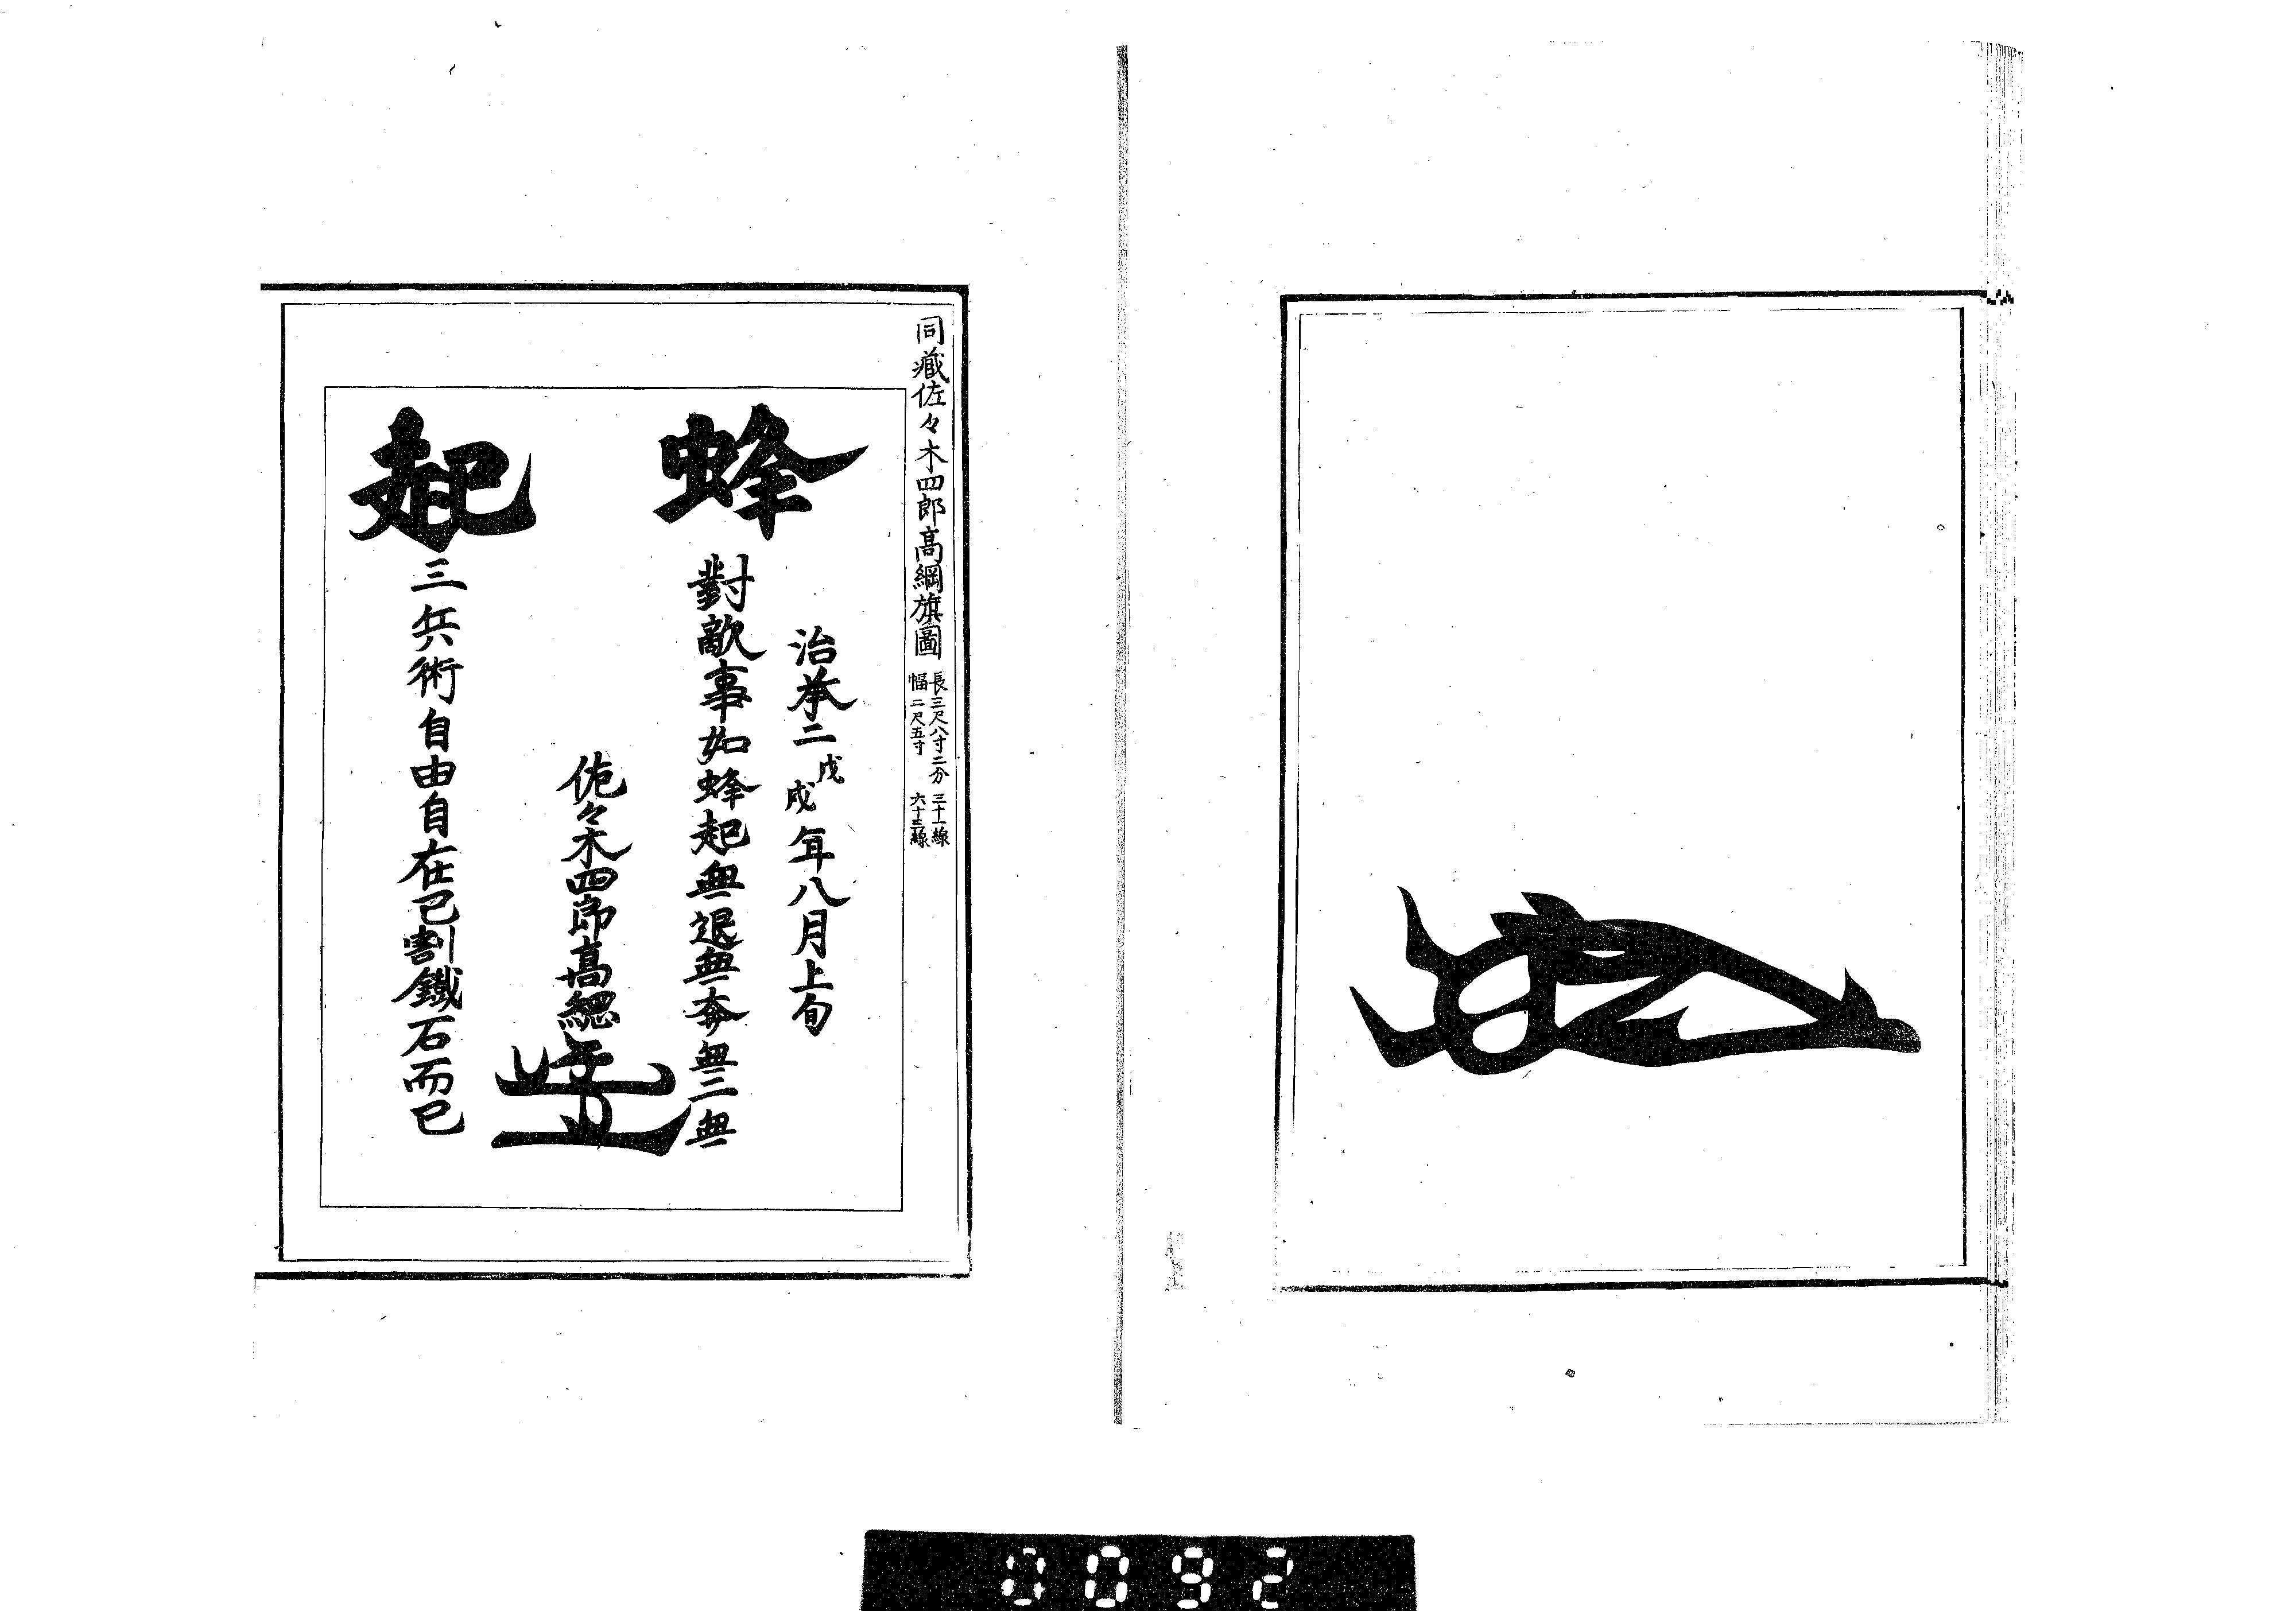 同藏佐々木四郎高綱旗圖 長三尺八寸二分 三十一線
幅二尺五寸 六十三線
蜂
治承二戊戌年八月上旬
對敵事如蜂起無退無奔無二無
佐々木四郎高綱
起
三兵術自由自在已割鐵石而已
0092